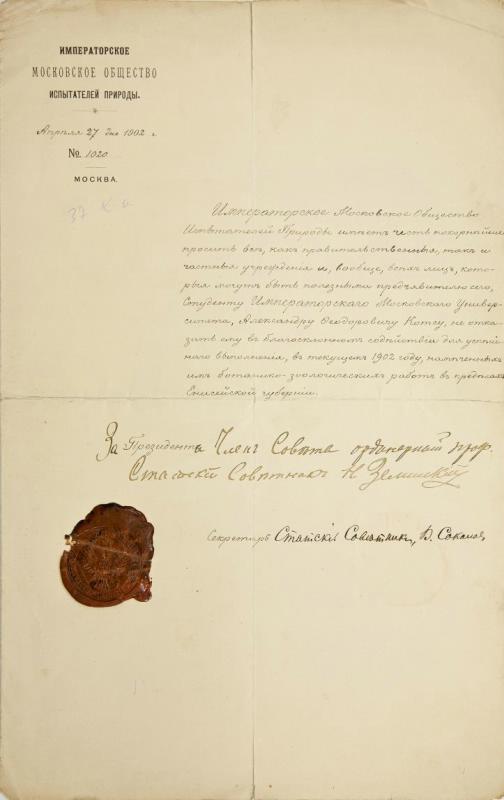 ИМПЕРАТОРСКОЕ
МОСКОВСКОЕ ОБЩЕСТВО
ИСПЫТАТЕЛЕЙ ПРИРОДЫ.
Апрѣля 27 дня 1902 г.
№ 1020
МОСКВА.
37
Императорское Московское Общество
Испытателей Природы имѣетъ честь покорнѣйше
просить всѣ, какъ правительственныя, такъ и
частныя учрежденія и, вообще, всѣхъ лицъ, кото-
рыя могутъ быть полезными предъявителю сего,
Студенту Императорскаго Московскаго Универ-
ситета, Александру Ѳеодоровичу Котсу, не отка-
зать ему въ благосклонномъ содѣйствіи для успѣш-
наго выполненія, въ текущемъ 1902 году, намѣченныхъ
имъ ботанико-зоологическихъ работъ въ предѣлахъ
Енисейской губерніи.
За Президента Членъ Совѣта ординарный проф.
Статскій Совѣтникъ Н Зелинскій
Секретарь Статскій Совѣтникъ, В. Соколовъ